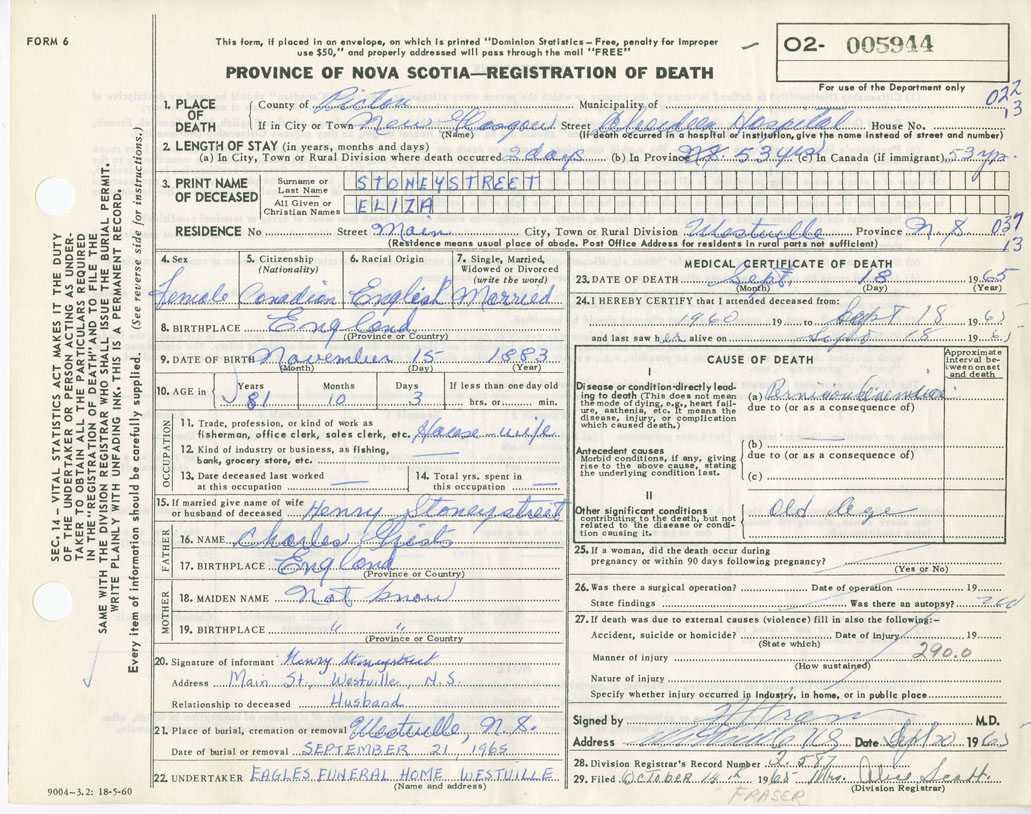 FORM 6
This form, if placed in an envelope, on which is printed "Dominion Statistics – Free, penalty for improper
use $50," and properly addressed will pass through the mail "FREE"
02- 005944
PROVINCE OF NOVA SCOTIA—REGISTRATION OF DEATH
For use of the Department only
1. PLACE OF DEATH
County of Pictou Municipality of
022
13
If in City or Town New Glasgow Street Aberdeen Hospital House No.
(Name) (If death occurred in a hospital or institution, give the name instead of street and number)
2. LENGTH OF STAY (in years, months and days)
(a) In City, Town or Rural Division where death occurred 2 days (b) In Province N.S. 53 yrs (c) In Canada (if immigrant) 53 yrs.
3. PRINT NAME OF DECEASED
Surname or Last Name STONEYSTREET
All Given or Christian Names ELIZA
RESIDENCE No Street Main City, Town or Rural Division Westville Province N.S. 037
13
(Residence means usual place of abode. Post Office Address for residents in rural parts not sufficient)
4. Sex 5. Citizenship (Nationality) 6. Racial Origin 7. Single, Married, Widowed or Divorced (write the word)
Female Canadian English Married
8. BIRTHPLACE England
(Province or Country)
9. DATE OF BIRTH November 15 1883
(Month) (Day) (Year)
10. AGE in Years Months Days If less than one day old
81 10 3 hrs. or min.
OCCUPATION
11. Trade, profession, or kind of work as
fisherman, office clerk, sales clerk, etc. House wife
12. Kind of industry or business, as fishing,
bank, grocery store, etc. —
13. Date deceased last worked at this occupation — 14. Total yrs. spent in this occupation —
15. If married give name of wife
or husband of deceased Henry Stoneystreet
FATHER
16. NAME Charles
17. BIRTHPLACE England
(Province or Country)
MOTHER
18. MAIDEN NAME Not know
19. BIRTHPLACE " "
(Province or Country
20. Signature of informant Henry Stoneystreet
Address Main St., Westville, N.S.
Relationship to deceased Husband
21. Place of burial, cremation or removal Westville, N.S.
Date of burial or removal SEPTEMBER 21, 1965
22. UNDERTAKER EAGLES FUNERAL HOME WESTVILLE
(Name and address)
9004-3.2: 18-5-60
MEDICAL CERTIFICATE OF DEATH
23. DATE OF DEATH Sept. 18 1965
(Month) (Day) (Year)
24. I HEREBY CERTIFY that I attended deceased from:
1960 19 to Sept 18 1965
and last saw her alive on Sept 18 1965
CAUSE OF DEATH
Approximate interval between onset and death
I
Disease or condition directly leading to death (This does not mean the mode of dying, e.g., heart failure, asthenia, etc. It means the disease, injury, or complication which caused death.)
(a) Pernicious Anemia
due to (or as a consequence of)
Antecedent causes
Morbid conditions, if any, giving rise to the above cause, stating the underlying condition last.
(b)
due to (or as a consequence of)
(c)
II
Other significant conditions
contributing to the death, but not related to the disease or condition causing it.
Old Age
25. If a woman, did the death occur during
pregnancy or within 90 days following pregnancy?
(Yes or No)
26. Was there a surgical operation? Date of operation 19
State findings Was there an autopsy? no
27. If death was due to external causes (violence) fill in also the following:–
Accident, suicide or homicide? Date of injury 19
(State which)
290.0
Manner of injury
(How sustained)
Nature of injury
Specify whether injury occurred in industry, in home, or in public place
Signed by M.D.
Address Westville N.S. Date Sept 20 1965
28. Division Registrar's Record Number
29. Filed October 14th 1965 Mrs. Alice Scott.
(Division Registrar)
FRASER
SEC. 14 – VITAL STATISTICS ACT MAKES IT THE DUTY
OF THE UNDERTAKER OR PERSON ACTING AS UNDER-
TAKER TO OBTAIN ALL THE PARTICULARS REQUIRED
IN THE "REGISTRATION OF DEATH" AND TO FILE THE
SAME WITH THE DIVISION REGISTRAR WHO SHALL ISSUE THE BURIAL PERMIT.
WRITE PLAINLY WITH UNFADING INK. THIS IS A PERMANENT RECORD.
Every item of information should be carefully supplied. (See reverse side for instructions.)